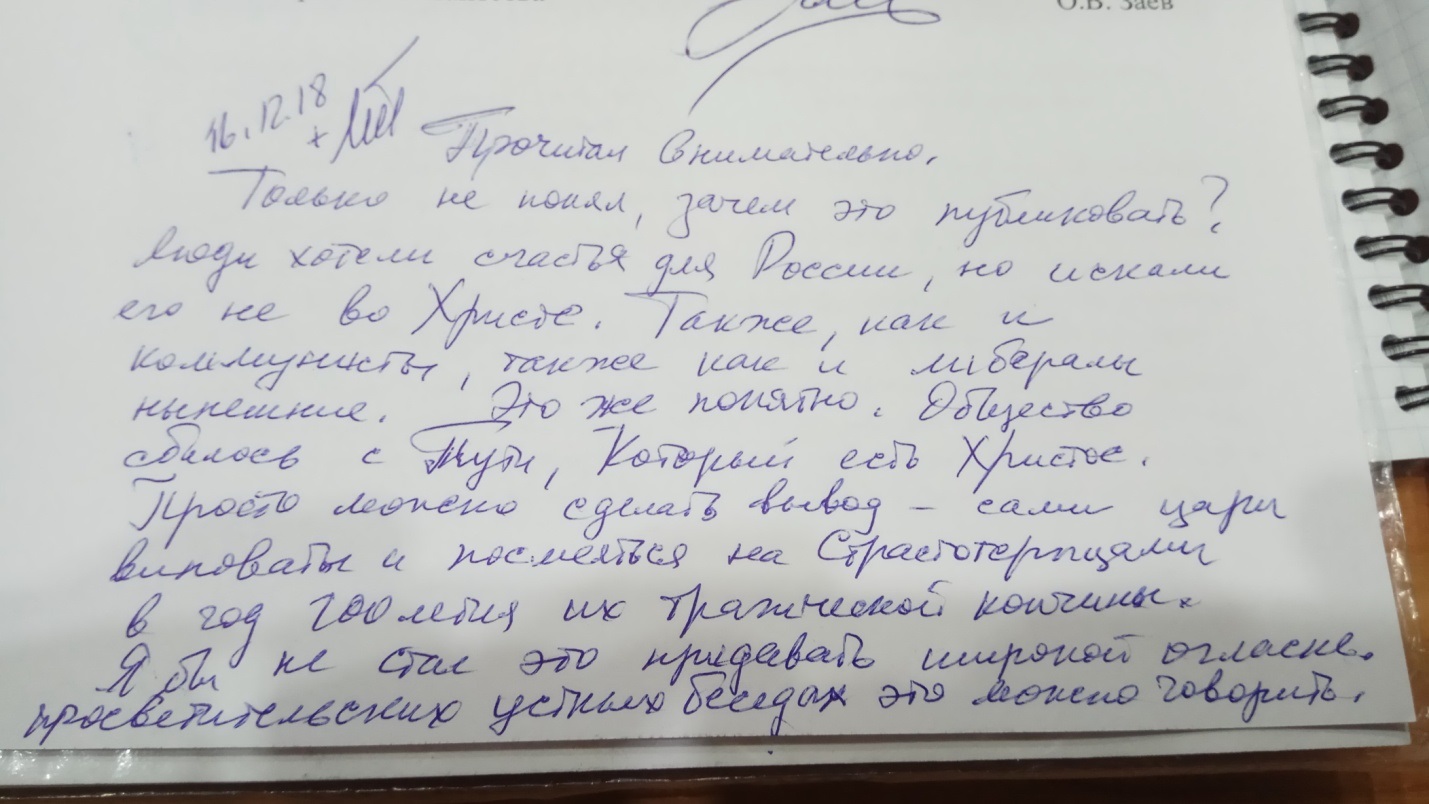 О.В. Заев
16.12.18
Прочитал внимательно.
Только не понял, зачем это публиковать?
Люди хотели счастья для России, но искали
его не во Христе. Также, как и
коммунисты, также как и либералы
нынешние. Это же понятно. Общество
сбилось с Пути, Который есть Христос.
Просто можно сделать вывод – сами цари
виноваты и посмеяться на Страстотерпцами
в год 100летия их трагической кончины.
Я бы не стал это придавать широкой огласке.
просветительских устных беседах это можно говорить.